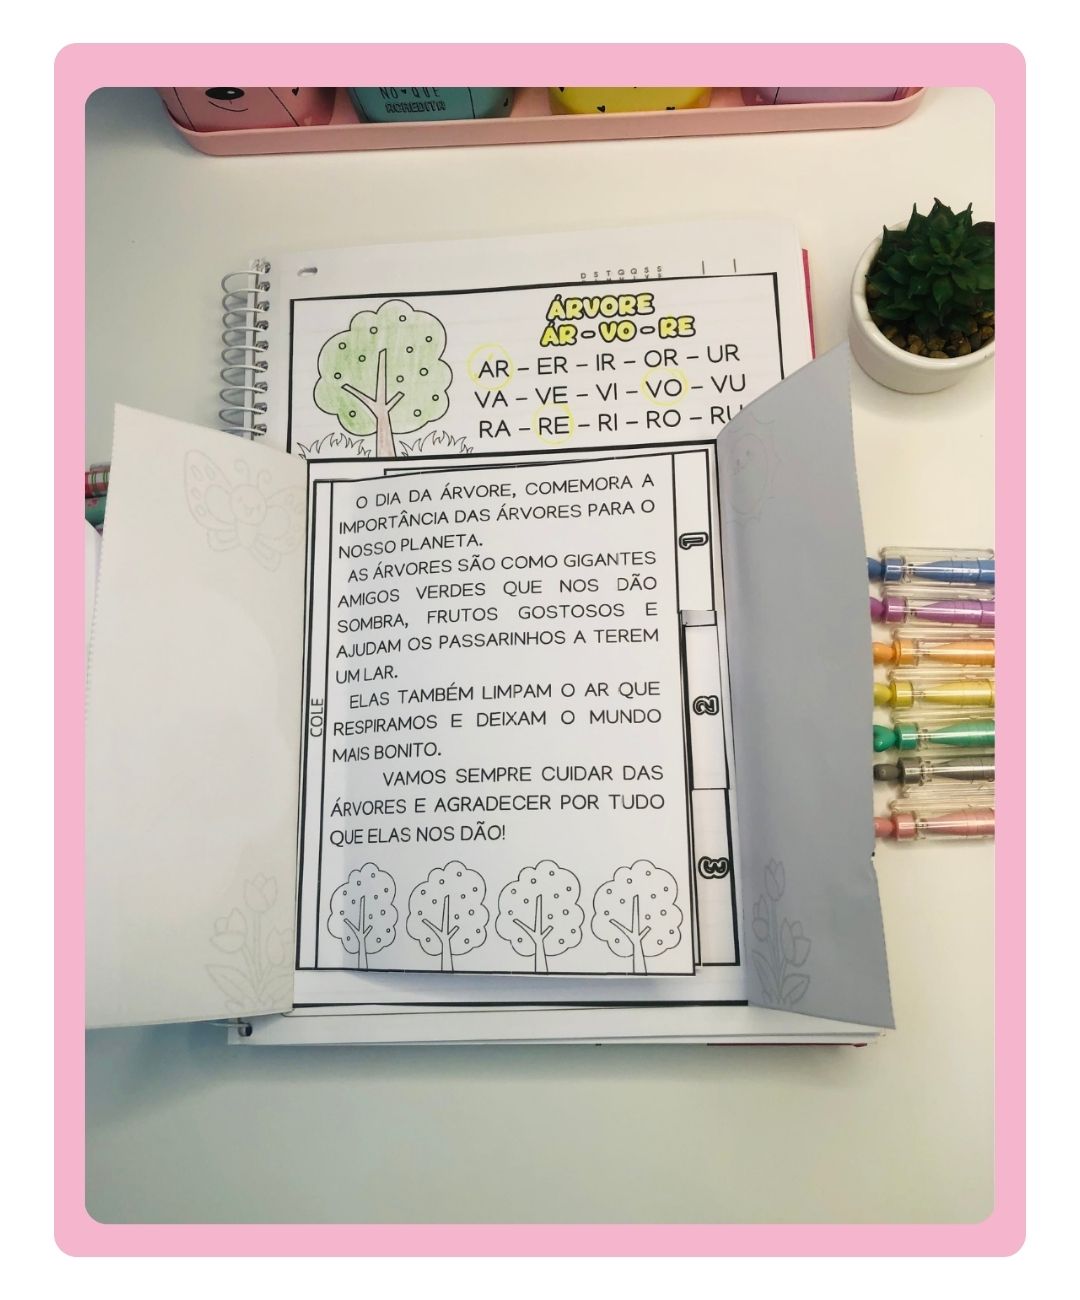 NO QUE
ACREDITA
D S T Q Q S S
ÁRVORE
ÁR - VO - RE
ÁR - ER - IR - OR - UR
VA - VE - VI - VO - VU
RA - RE - RI - RO - RU
O DIA DA ÁRVORE, COMEMORA A
IMPORTÂNCIA DAS ÁRVORES PARA O
NOSSO PLANETA.
AS ÁRVORES SÃO COMO GIGANTES
AMIGOS VERDES QUE NOS DÃO
SOMBRA, FRUTOS GOSTOSOS E
AJUDAM OS PASSARINHOS A TEREM
UM LAR.
ELAS TAMBÉM LIMPAM O AR QUE
RESPIRAMOS E DEIXAM O MUNDO
MAIS BONITO.
VAMOS SEMPRE CUIDAR DAS
ÁRVORES E AGRADECER POR TUDO
QUE ELAS NOS DÃO!
COLE
1
2
3